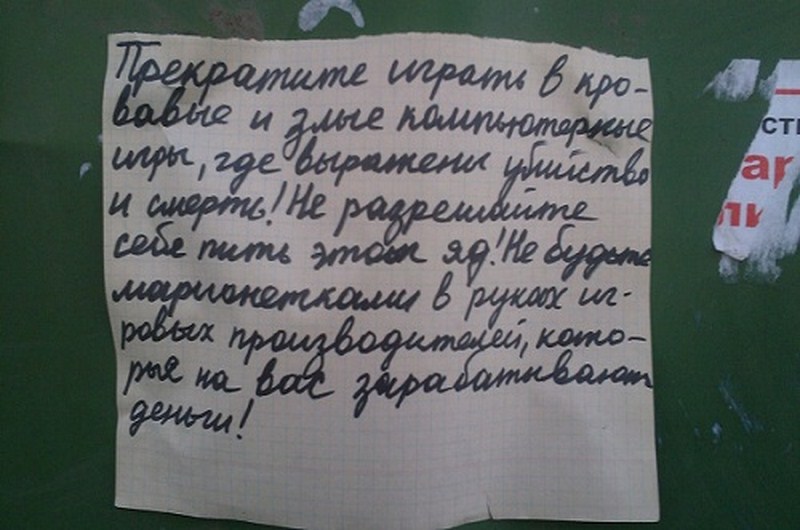 Прекратите играть в кро-
вавые и злые компьютерные
игры, где выражены убийство
и смерть! Не разрешайте
себе пить этот яд! Не будьте
марионетками в руках иг-
ровых производителей, кото-
рые на вас зарабатывают
деньги!
ст
ар
ли